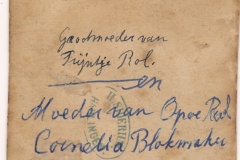 Grootmoeder van
Trijntje Rol.
en
Moeder van Opoe Rol
Cornelia Blokmaker